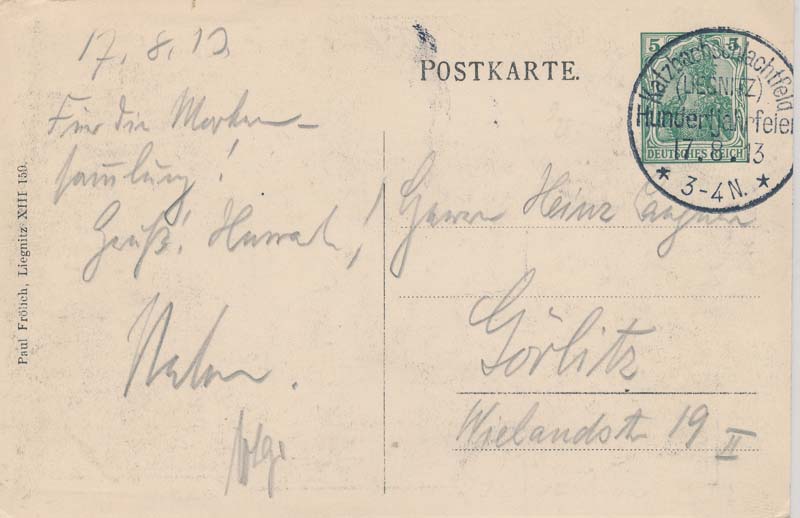 17.8.13
Für die Marken-
sammlung!
Gruß! Hurrah!
POSTKARTE.
5 5
DEUTSCHES REICH
Katzbachschlachtfeld
(LIEGNITZ)
Hundertjahrfeier
17.8.13
* 3-4N. *
Herrn Heinz
Görlitz
Wielandstr 19 II
Paul Frölich, Liegnitz XIII 159.